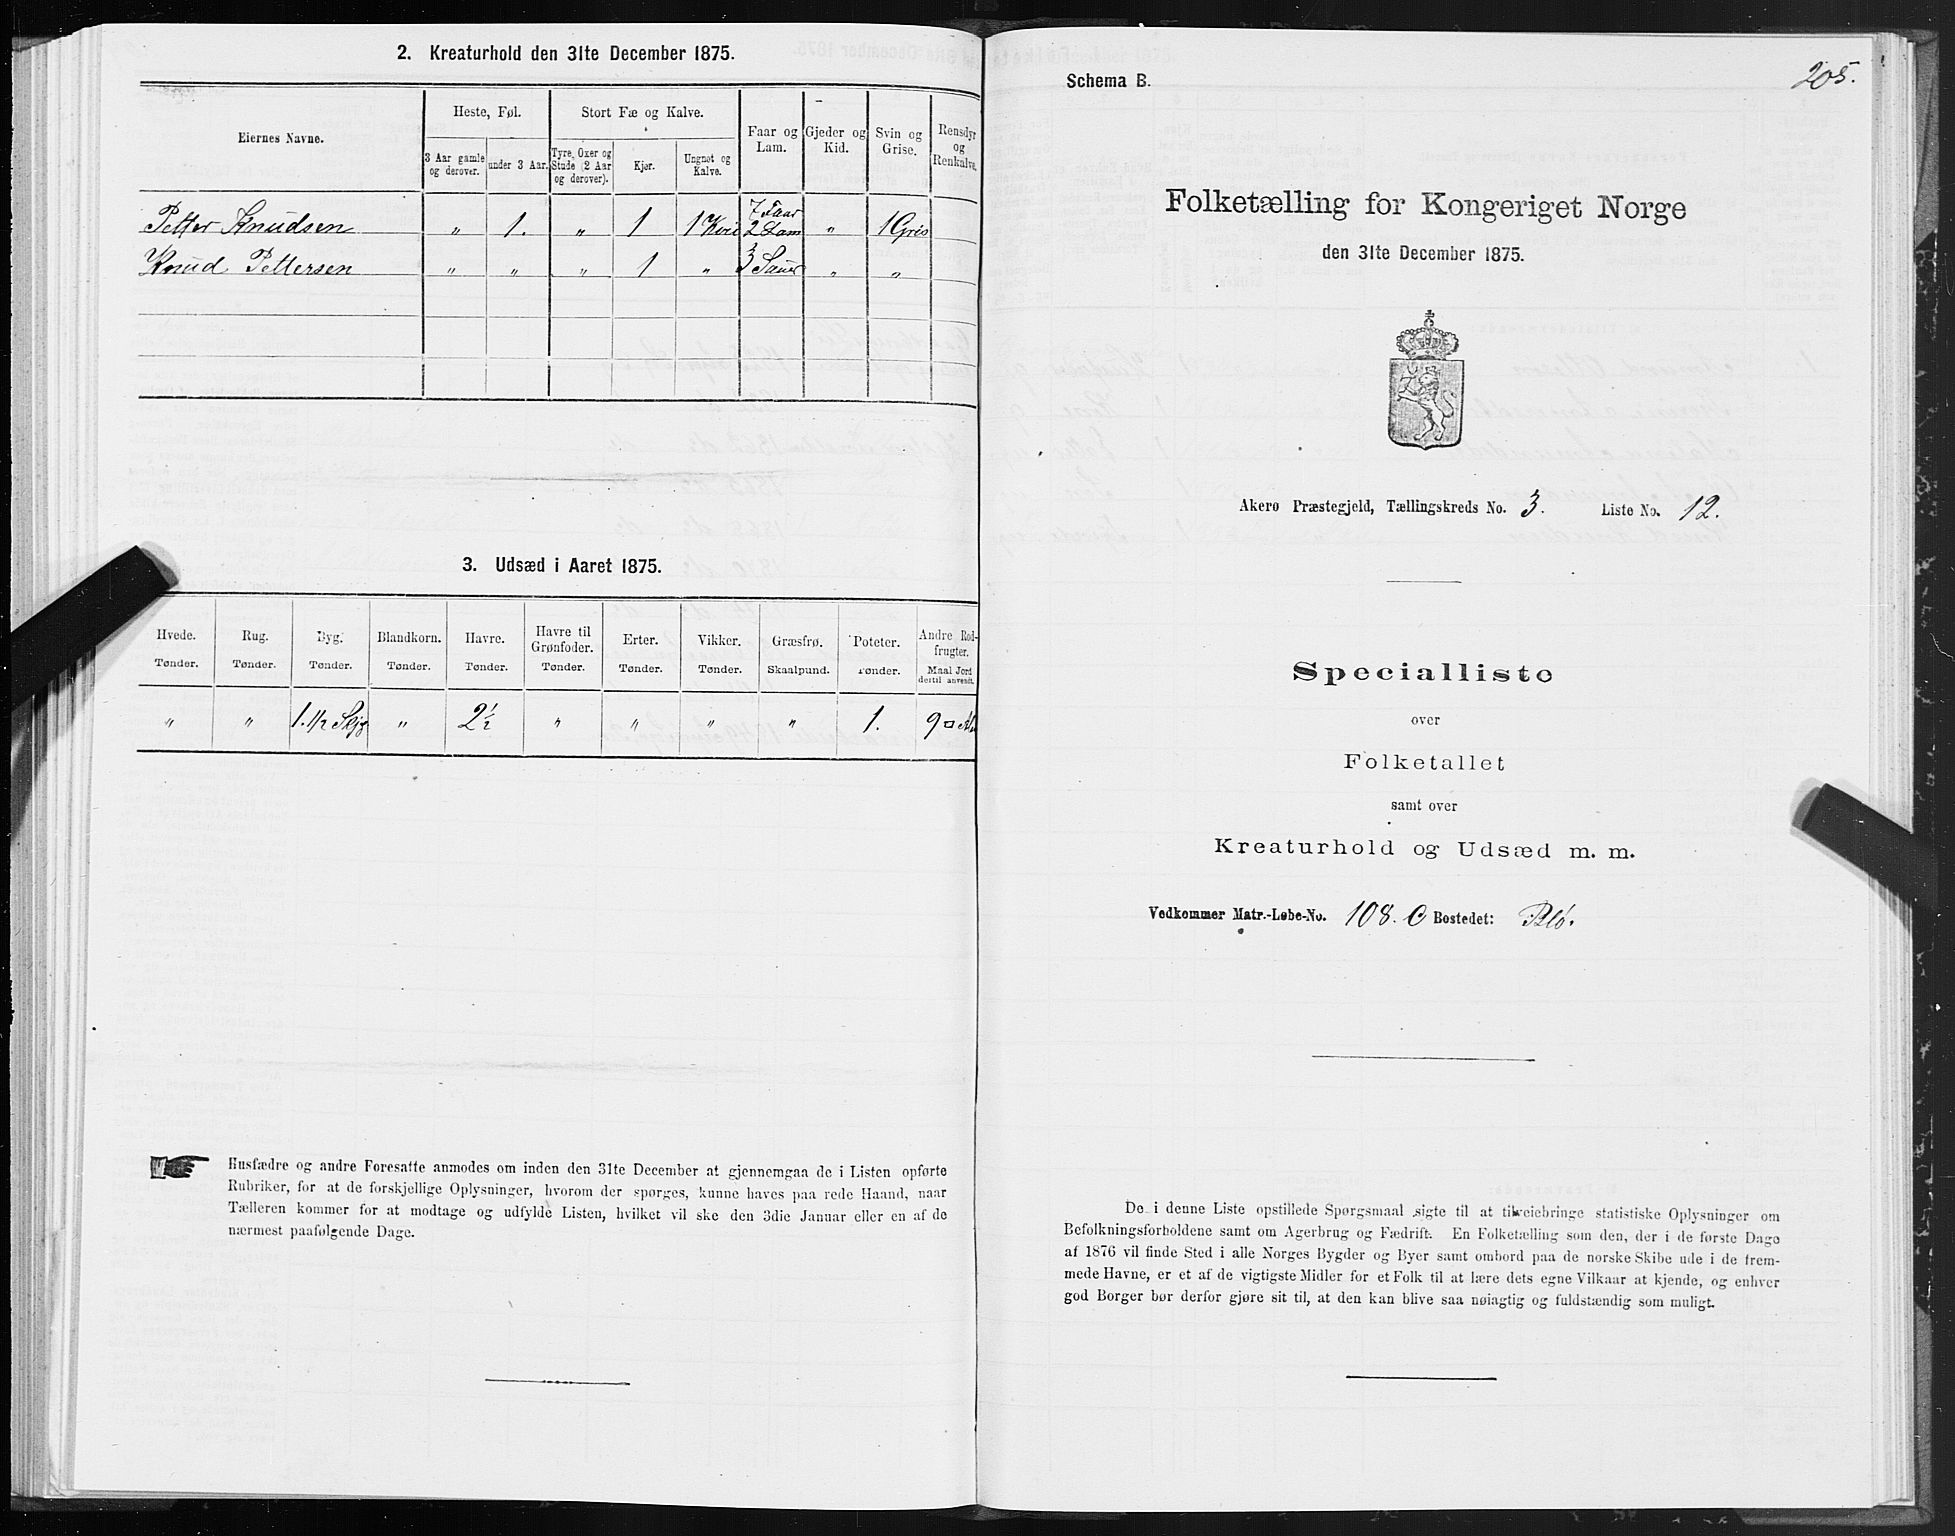 2. Kreaturhold den 31te December 1875.
Eiernes Navne.
Heste, Føl.
Stort Fæ og Kalve.
Faar og Lam.
Gjeder og Kid.
Svin og Grise.
Rensdyr og Renkalve.
3 Aar gamle og derover.
under 3 Aar.
Tyre, Oxer og Stude (2 Aar og derover).
Kjør.
Ungnøt og Kalve.
Petter Knudsen " 1. " 1 1 Kvie 7 Faar 2 Lam " 1 Gris
Knud Pettersen " " " 1 " 3 Sauer " "
3. Udsæd i Aaret 1875.
Hvede. Rug. Byg. Blandkorn. Havre. Havre til Grønfoder. Erter. Vikker. Græsfrø. Poteter. Andre Rodfrugter.
Tønder. Tønder. Tønder. Tønder. Tønder. Tønder. Tønder. Tønder. Skaalpund. Tønder. Maal Jord dertil anvendt.
" " 1. 1/2 Skjp " 2 1/2 " " " " 1. 9 □ Al
Husfædre og andre Foresatte anmodes om inden den 31te December at gjennemgaa de i Listen opførte
Rubriker, for at de forskjellige Oplysninger, hvorom der spørges, kunne haves paa rede Haand, naar
Tælleren kommer for at modtage og udfylde Listen, hvilket vil ske den 3die Januar eller en af de
nærmest paafølgende Dage.
205.
Schema B.
Folketælling for Kongeriget Norge
den 31te December 1875.
Akerø Præstegjeld, Tællingskreds No. 3. Liste No. 12.
Specialliste
over
Folketallet
samt over
Kreaturhold og Udsæd m. m.
Vedkommer Matr.-Løbe-No. 108. C Bostedet: Blø.
De i denne Liste opstillede Spørgsmaal sigte til at tilveiebringe statistiske Oplysninger om
Befolkningsforholdene samt om Agerbrug og Fædrift. En Folketælling som den, der i de første Dage
af 1876 vil finde Sted i alle Norges Bygder og Byer samt ombord paa de norske Skibe ude i de frem-
mede Havne, er et af de vigtigste Midler for et Folk til at lære dets egne Vilkaar at kjende, og enhver
god Borger bør derfor gjøre sit til, at den kan blive saa nøiagtig og fuldstændig som muligt.